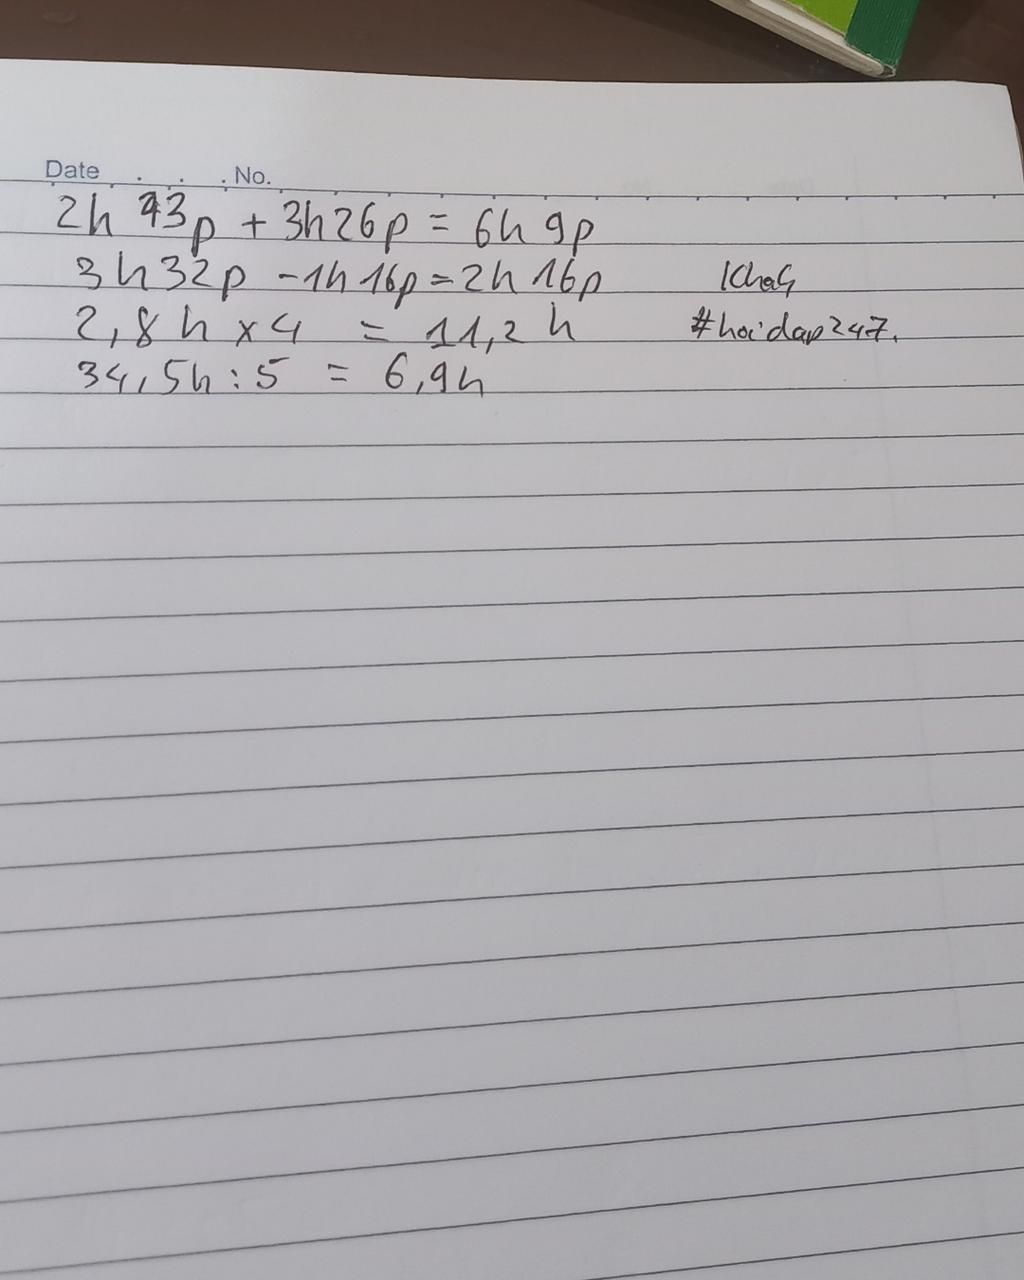 Date . . . No.
2h 43p + 3h26p = 6h 9p
3h32p - 1h 16p = 2h 16p
2,8h x 4 = 11,2h #hoidap247.
34,5h : 5 = 6,9h